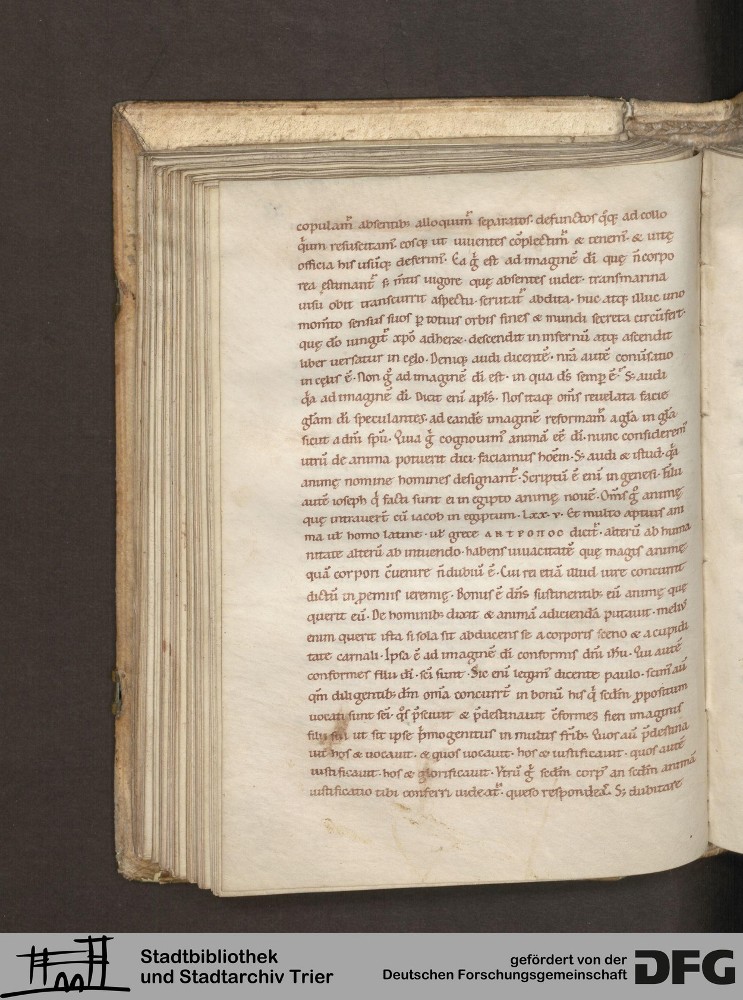 copulam̄ absentib; alloquim̄ separatos· defunctos q̨q; ad collo
q̄um resuscitam̄ eosq; ut uiuentes cōplectim̄ & tenem̄· & uitę
officia his usūq; deferim̄· Ea ḡ est ad imaginē dī quę n̄ corpo
rea estimant̄ s; m̄tis uigore quę absentes uidet· transmarina
uisu obit transcurrit aspectu· scrutat̄ abdita· huc atq; illuc uno
mom̄to sensus suos ꝑ totius orbis fines & mundi secreta circūfert·
quę dō iungit̄ xpō adheret· descendit in infernū atq; ascendit
liber uersatur in cęlo· Deniq; audi dicentē· nr̄a autē conūsatio
in cęlis ē· Non ḡ ad imaginē dī est· in qua ds̄ semp̄ ē· S; audi
q̄a ad imaginē dī· Dicit enī apl̄s· Nos itaq; om̄s reuelata facie
glām dī speculantes· ad eandē imaginē reformam̄ a glā in glā
sicut a dn̄i spū· Quia ḡ cognouim̄ animā eē dī· nunc considerem̄
utrū de anima potuerit dici· faciamus hoēm· S; audi & istud· q̄a
animę nomine homines designant̄· Scriptū ē enī in genesi· Filii
autē ioseph q̄ facti sunt ei in egipto animę nouē· Om̄s ḡ animę
quę intrauer̄t cū iacob in egyptum· lxx·v· Et multo aptius ani
ma uł homo latine· uł grece ΑΝΤΡΟΠΟC dicit̄· alterū ab huma
nitate alterū ab intuendo· habens uiuacitatē quę magis animę
quā corpori c̄uenire n̄ dubiū ē· Cui rei etiā illud iure concurrit
dictū in p̱emiis ieremię· Bonus ē dn̄s sustinentib; eū animę quę
querit eū· De hominib; dixit & animā adiciendā putauit· meliꝰ
enim querit ista si sola sit abducens se a corporis sceno & a cupidi
tate carnali· Ipsa ē ad imaginē dī conformis dn̄i ihū· Qui autē
conformes filii dī· sc̄i sunt· Sic enī legim̄ dicente paulo· scim̄ aū
qm̄ diligentib; dm̄ om̄a concurr̄t in bonū his q̄ sc̄dm p̱positum
uocati sunt sc̄i· q̄s p̄sciuit & p̄destinauit c̄formes fieri imaginis
filii sui ut sit ipse p̄mogenitus in multis frīb; Quos aū p̄destina
uit hos & uocauit· & quos uocauit· hos & iustificauit· quos autē
iustificauit· hos & glorificauit· Vtrū ḡ sc̄dm corpꝰ an sc̄dm animā
iustificatio tibi conferri uideat̄· queso respondeas· S; dubitare
Stadtbibliothek
und Stadtarchiv Trier
gefördert von der
Deutschen Forschungsgemeinschaft
DFG